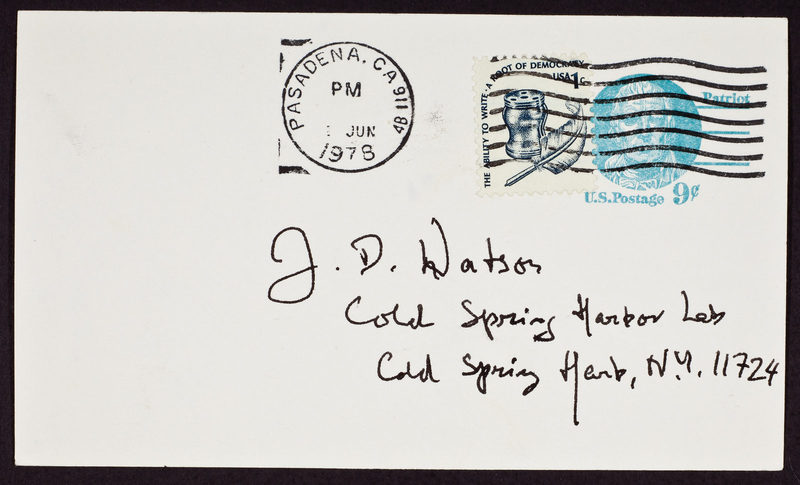 PASADENA, CA 911 4B
PM
1 JUN
1978
THE ABILITY TO WRITE · A ROOT OF DEMOCRACY
USA 1c
Patriot
U.S. Postage 9¢
J. D. Watson
Cold Spring Harbor Lab
Cold Spring Harb, N.Y. 11724